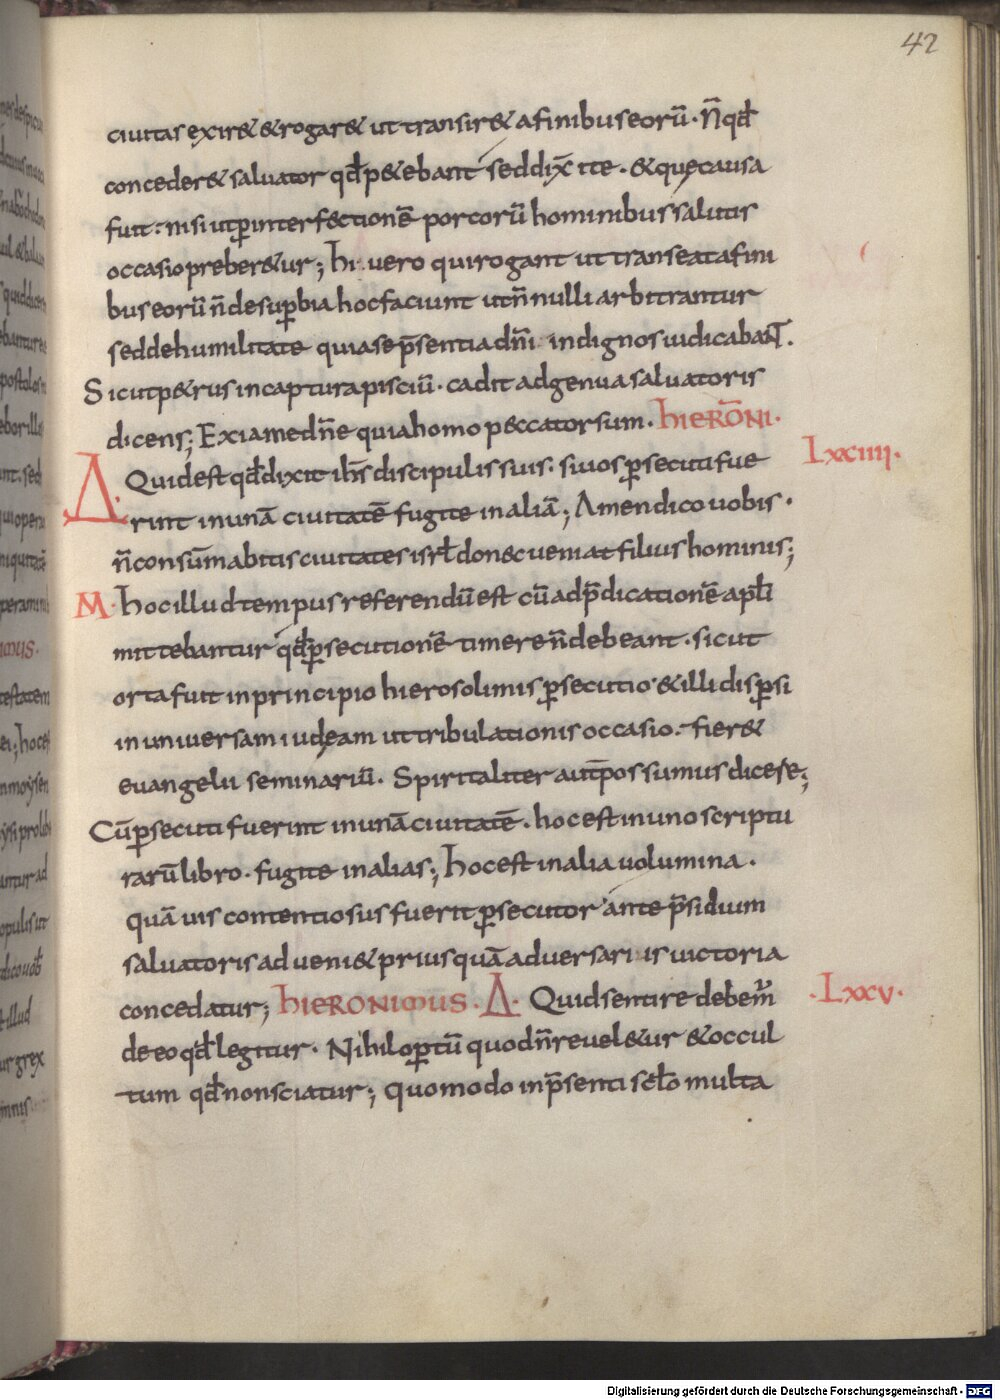 42
ciuitas exir& &rogar& ut transir& afinibus eorū · N̄ qđ
conceder& saluator qđ p&ebant sed dix̄ ite · & quę causa
fuit : nisi ut ꝑ interfectionē porcorū hominibus salutis
occasio preber&ur ; hi uero qui rogant ut transeat a fini
bus eorū n̄ de suꝑbia hoc faciunt ut n̄nulli arbitrantur
sed de humilitate quia se p̄sentia dn̄i indignos iudicabanT .
Sicut p&rus in captura pisciū · cadit ad genua saluatoris
dicens ; Exi a me dn̄e quia homo peccator sum . hIERŌNI ·
Δ · Quid est qđ dixit ih̄s discipulis suis · si uos ꝑsecuti fue Lxxiiii .
rint in unā ciuitatē fugite in aliā ; Amen dico uobis ·
n̄ consūmabitis ciuitates isrł donec ueniat filius hominis ;
M · hoc illud tempus referendū est cū ad p̄dicationē apłi
mittebantur qđ ꝑsecutionē timere n̄ debeant · sicut
orta fuit in principio hierosolimis ꝑsecutio · & illi disꝑsi
in uniuersam iudęam ut tribulationis occasio · fier&
euangelii seminariū . Spiritaliter aut̄ possumus dicere ;
Cū ꝑsecuti fuerint in unā ciuitatē . hoc est in uno scriptu
rarū libro · fugite in alias ; hoc est in alia uolumina .
quā uis contentiosus fuerit ꝑsecutor ante p̄sidium
saluatoris adueni& prius quā aduersariis uictoria
concedatur ; hIERONIMUS · Δ · Quid sentire debem̄ · Lxxv .
de eo qđ legitur · Nihil oꝑtū quod n̄ reuel&ur & occul
tum qđ non sciatur ; quomodo in p̄senti scło multa
Digitalisierung gefördert durch die Deutsche Forschungsgemeinschaft - DFG